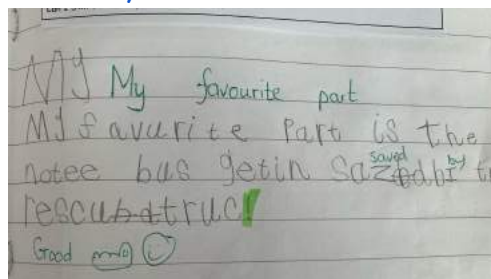 My My favourite part
My favurite Part is the
notee bus getin sazed saved bi by t
rescu truc!
Good